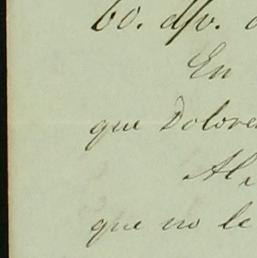 60. d/v.
En
que Dolore
Al
que no le